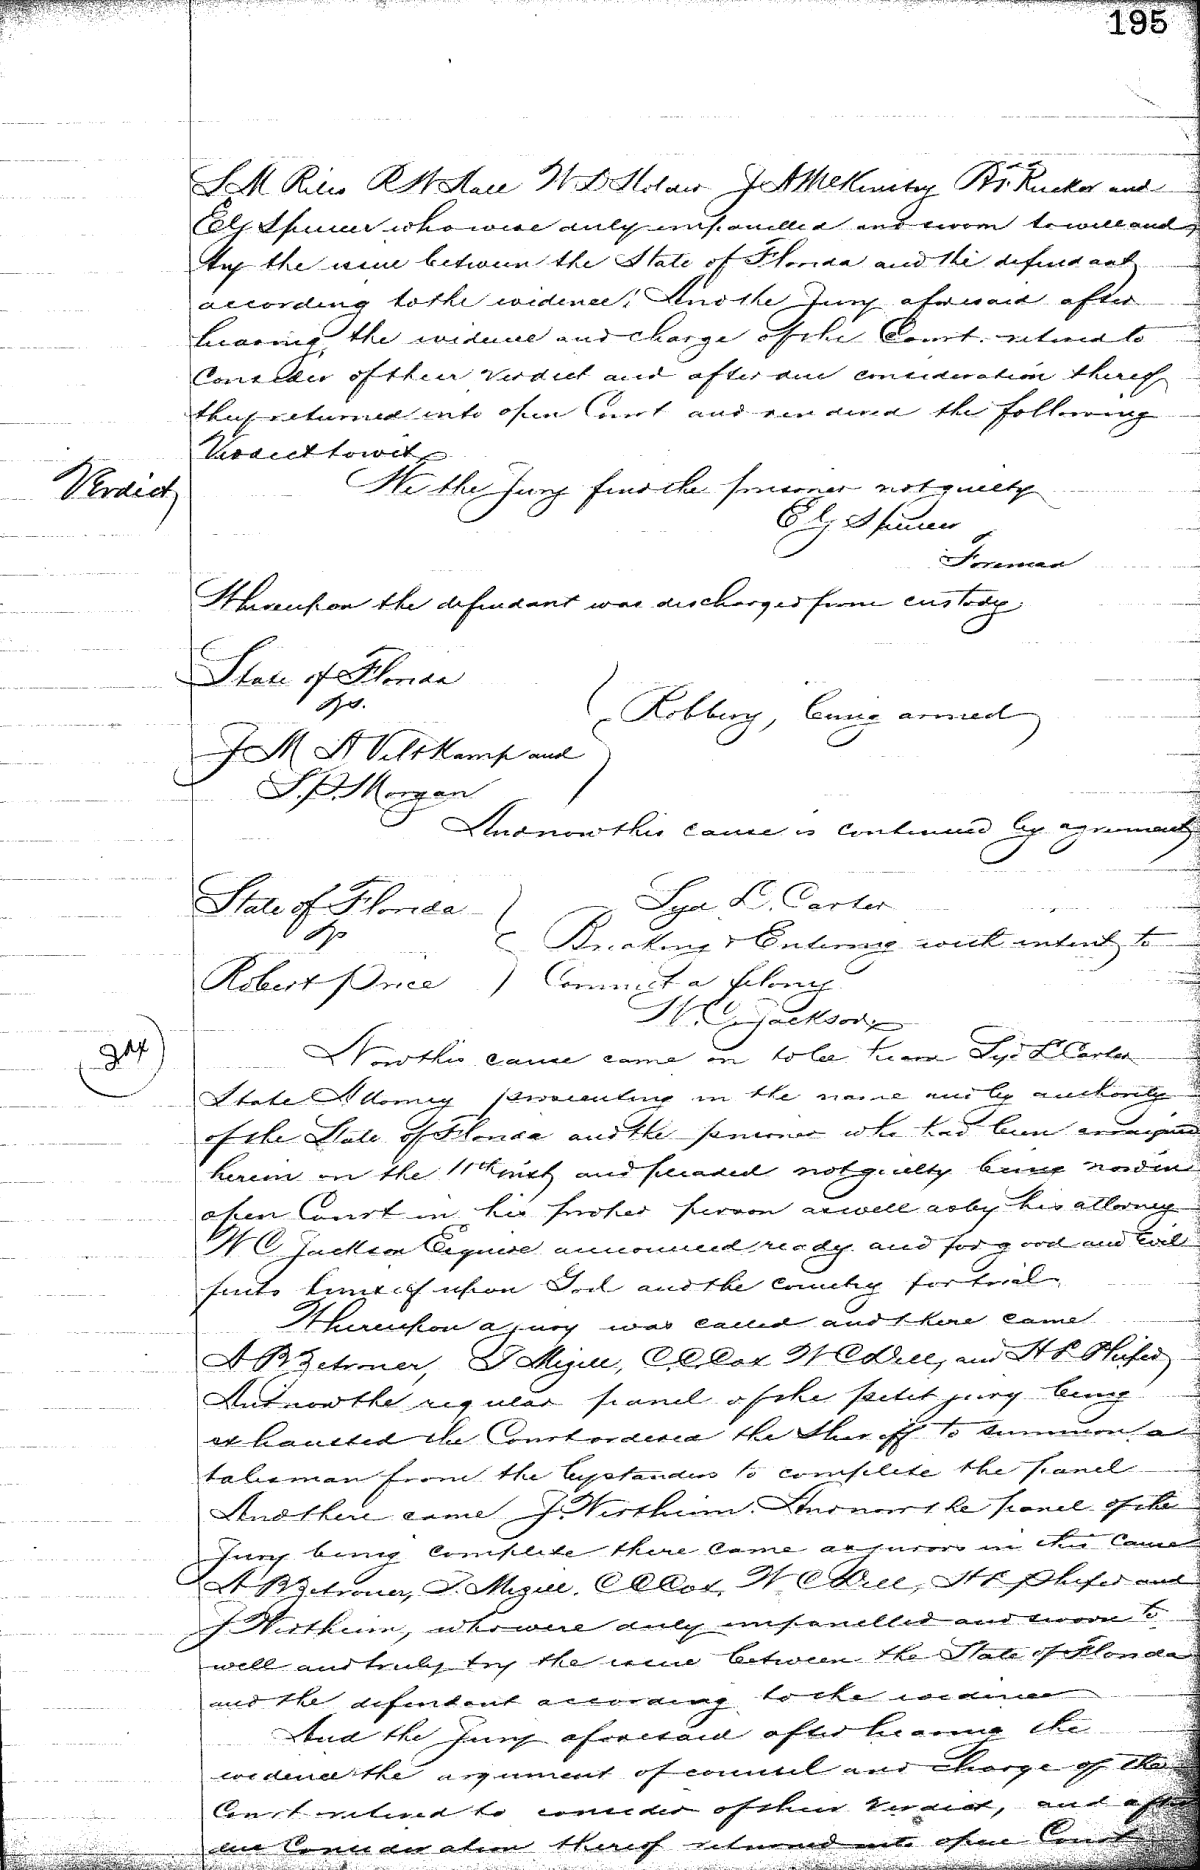 195
S M Rills R W Hall W D Holder J A McKinstry Rucker and
E G Spencer who were duly empanelled and sworn to well and
try the issue between the State of Florida and the defendant
according to the evidence; And the Jury aforesaid after
hearing, the evidence and charge of the Court. retired to
Consider of their Verdict and after due consideration thereof
they returned into open Court and rendered the following
Verdict to wit
Verdict
We the Jury find the prisoner not guilty
E G Spencer
Foreman
Whereupon the defendant was discharged from custody.
State of Florida
vs.
Robbery, being armed
J M A Veltkamp and
S. P. Morgan
And now this cause is continued by agreement
State of Florida
Syd L. Carter
vs
Breaking & Entering with intent to
Robert Price
Commit a felony
W. C. Jackson
Now this cause came on to be heard Syd L Carter
State Attorney prosecuting in the name and by authority
of the State of Florida and the prisoner who had been arraigned
herein on the 11th inst and pleaded not guilty being now in
open Court in his proper person as well as by his attorney
W C Jackson Esquire announced ready and for good and evil
puts himself upon God and the country for trial
Whereupon a jury was called and there came
A B Zetrouer, J Mizell, C C Cox W C Dell, and H L Phifer
And now the regular panel of the petit jury being
exhausted the Court ordered the Sheriff to summon a
talisman from the bystanders to complete the panel
And there came J. Wertheim. And now the panel of the
Jury being complete there came as jurors in this cause
A B Zetrouer, J. Mizell. C C Cox, W C Dell, H L Phifer and
J Wertheim, who were duly empanelled and sworn to
well and truly try the issue between the State of Florida
and the defendant according to the evidence
And the Jury aforesaid after hearing the
evidence the argument of counsel and charge of the
Court retired to consider of their Verdict, and after
due Consideration thereof returned into open Court